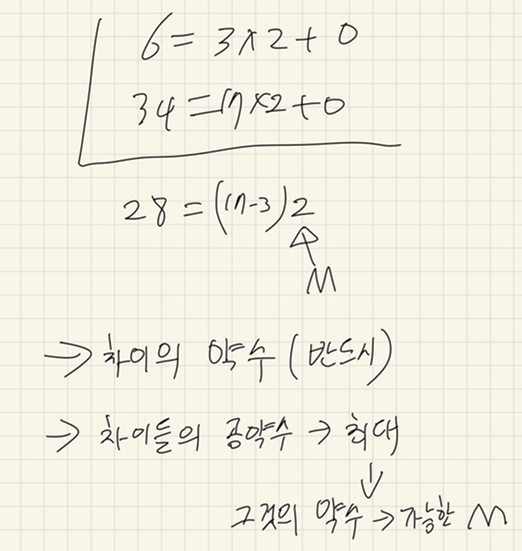 6 = 3 x 2 + 0
34 = 17 x 2 + 0
28 = (17-3) 2
M
→ 차이의 약수 (반드시)
→ 차이들의 공약수 → 최대
↓
그것의 약수 → 가능한 M